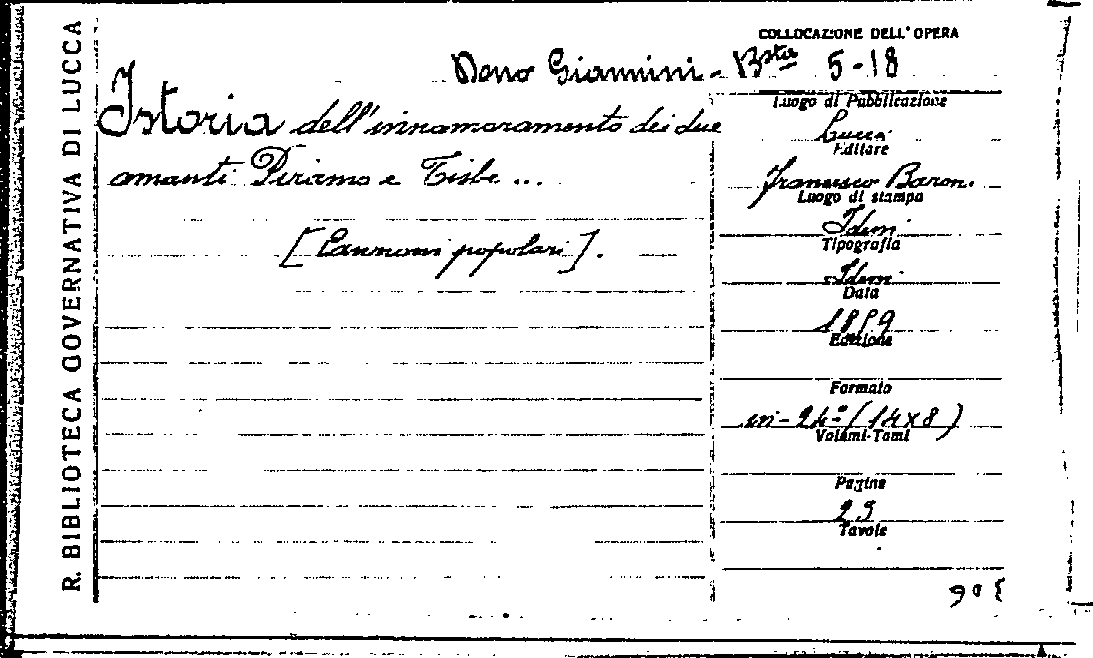 R. BIBLIOTECA GOVERNATIVA DI LUCCA
COLLOCAZIONE DELL' OPERA
Dono Giannini - Bsta 5-18
Istoria dell'innamoramento dei due
amanti Piramo e Tisbe ...
[Canzoni popolari].
Luogo di Pubblicazione
Lucca
Editore
Francesco Baroni
Luogo di stampa
Idem
Tipografia
Idem
Data
Edizione
Formato
in-24º (14x8)
Volumi-Tomi
Pagine
23
Tavole